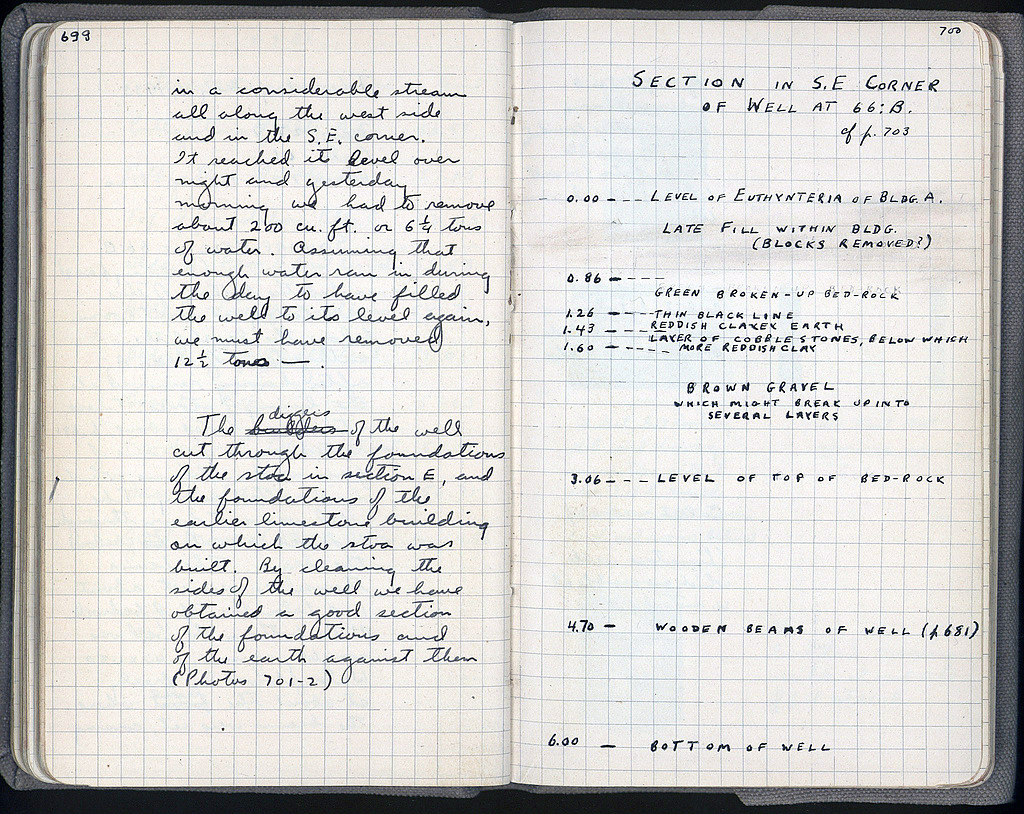 699
in a considerable stream
all along the west side
and in the S.E. corner.
It reached its level over
night and yesterday
morning we had to remove
about 200 cu. ft. or 6 1/4 tons
of water. Assuming that
enough water ran in during
the day to have filled
the well to its level again,
we must have removed
12 1/2 tons —.
diggers
The builders of the well
cut through the foundations
of the stoa in section E, and
the foundations of the
earlier limestone building
on which the stoa was
built. By cleaning the
sides of the well we have
obtained a good section
of the foundations and
of the earth against them
(Photos 701-2)
700
SECTION IN S.E CORNER
OF WELL AT 66:B.
cf p. 703
0.00 - - - LEVEL OF EUTHYNTERIA OF BLDG. A.
LATE FILL WITHIN BLDG.
(BLOCKS REMOVED?)
0.86 - - - -
GREEN BROKEN-UP BED-ROCK
1.26 - - - - THIN BLACK LINE
1.43 - - - - REDDISH CLAYEY EARTH
LAYER OF COBBLE STONES, BELOW WHICH
1.60 - - - - MORE REDDISH CLAY
BROWN GRAVEL
WHICH MIGHT BREAK UP INTO
SEVERAL LAYERS
3.06 - - - LEVEL OF TOP OF BED-ROCK
4.70 - WOODEN BEAMS OF WELL (p 681)
6.00 - BOTTOM OF WELL